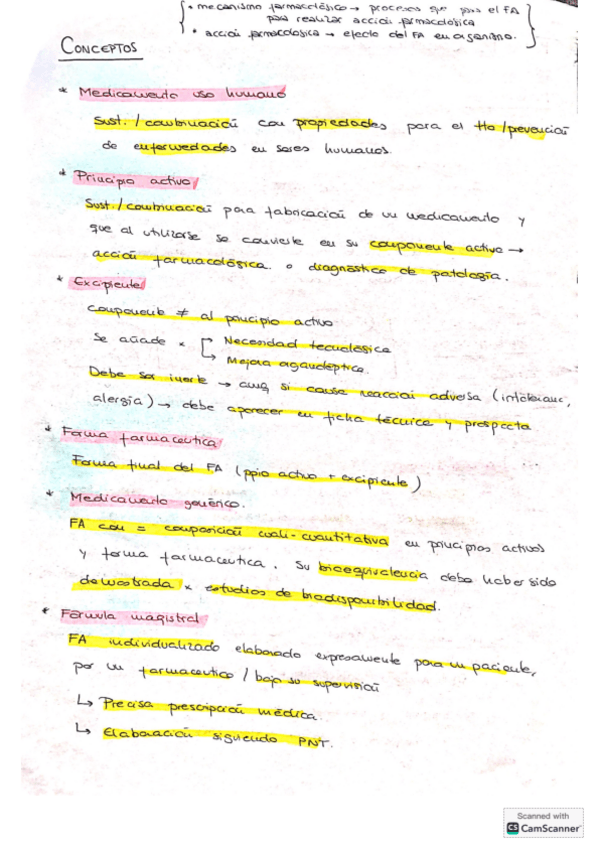 • mecanismo farmacológico → procesos que pasa el FA
para realizar acción farmacológica
• acción farmacológica → efecto del FA en organismo.
CONCEPTOS
* Medicamento uso humano
Sust. / combinación con propiedades para el tto / prevención
de enfermedades en seres humanos.
* Principio activo
Sust. / combinación para fabricación de un medicamento y
que al utilizarse se convierte en su componente activo →
acción farmacológica o diagnóstico de patología.
* Excipiente
Componente ≠ al principio activo
Se añade x Necesidad tecnológica
Mejora organoléptica.
Debe ser inerte → aunq si causa reacción adversa (intoleranc,
alergia) → debe aparecer en ficha técnica y prospecto
* Forma farmaceutica
Forma final del FA (ppio activo + excipiente)
* Medicamento genérico.
FA con = composición cuali-cuantitativa en principios activos
y forma farmaceutica. Su bioequivalencia debe haber sido
demostrada x estudios de biodisponibilidad.
* Fórmula magistral
FA individualizado elaborado expresamente para un paciente,
por un farmaceutico / bajo su supervisión
↳ Precisa prescripción médica.
↳ Elaboración siguiendo PNT.
Scanned with
CS CamScanner